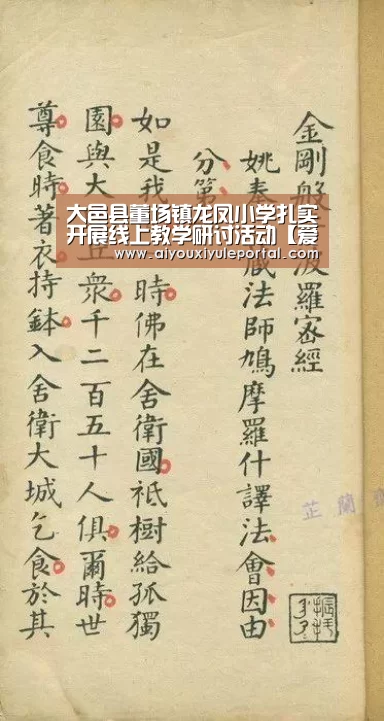 金剛般波羅密經
姚秦藏法師鳩摩羅什譯法會因由
分第
如是我時佛在舍衛國祇樹給孤獨
園與大丘衆千二百五十人俱爾時世
尊食時著衣持鉢入舍衛大城乞食於其
大邑县董场镇龙凤小学扎实
开展线上教学研讨活动【爱
www.aiyouxiyuleportal.com
芷蘭